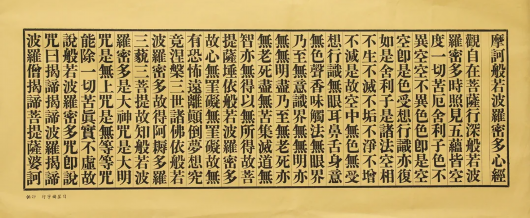 摩訶般若波羅蜜多心經
觀自在菩薩行深般若波
羅蜜多時照見五蘊皆空
度一切苦厄舍利子色不
異空空不異色色即是空
空即是色受想行識亦復
如是舍利子是諸法空相
不生不滅不垢不淨不增
不減是故空中無色無受
想行識無眼耳鼻舌身意
無色聲香味觸法無眼界
乃至無意識界無無明亦
無無明盡乃至無老死亦
無老死盡無苦集滅道無
智亦無得以無所得故菩
提薩埵依般若波羅蜜多
故心無罣礙無罣礙故無
有恐怖遠離顛倒夢想究
竟涅槃三世諸佛依般若
波羅蜜多故得阿耨多羅
三藐三菩提故知般若波
羅蜜多是大神咒是大明
咒是無上咒是無等等咒
能除一切苦眞實不虛故
說般若波羅蜜多咒即說
咒曰揭諦揭諦波羅揭諦
波羅僧揭諦菩提薩婆訶